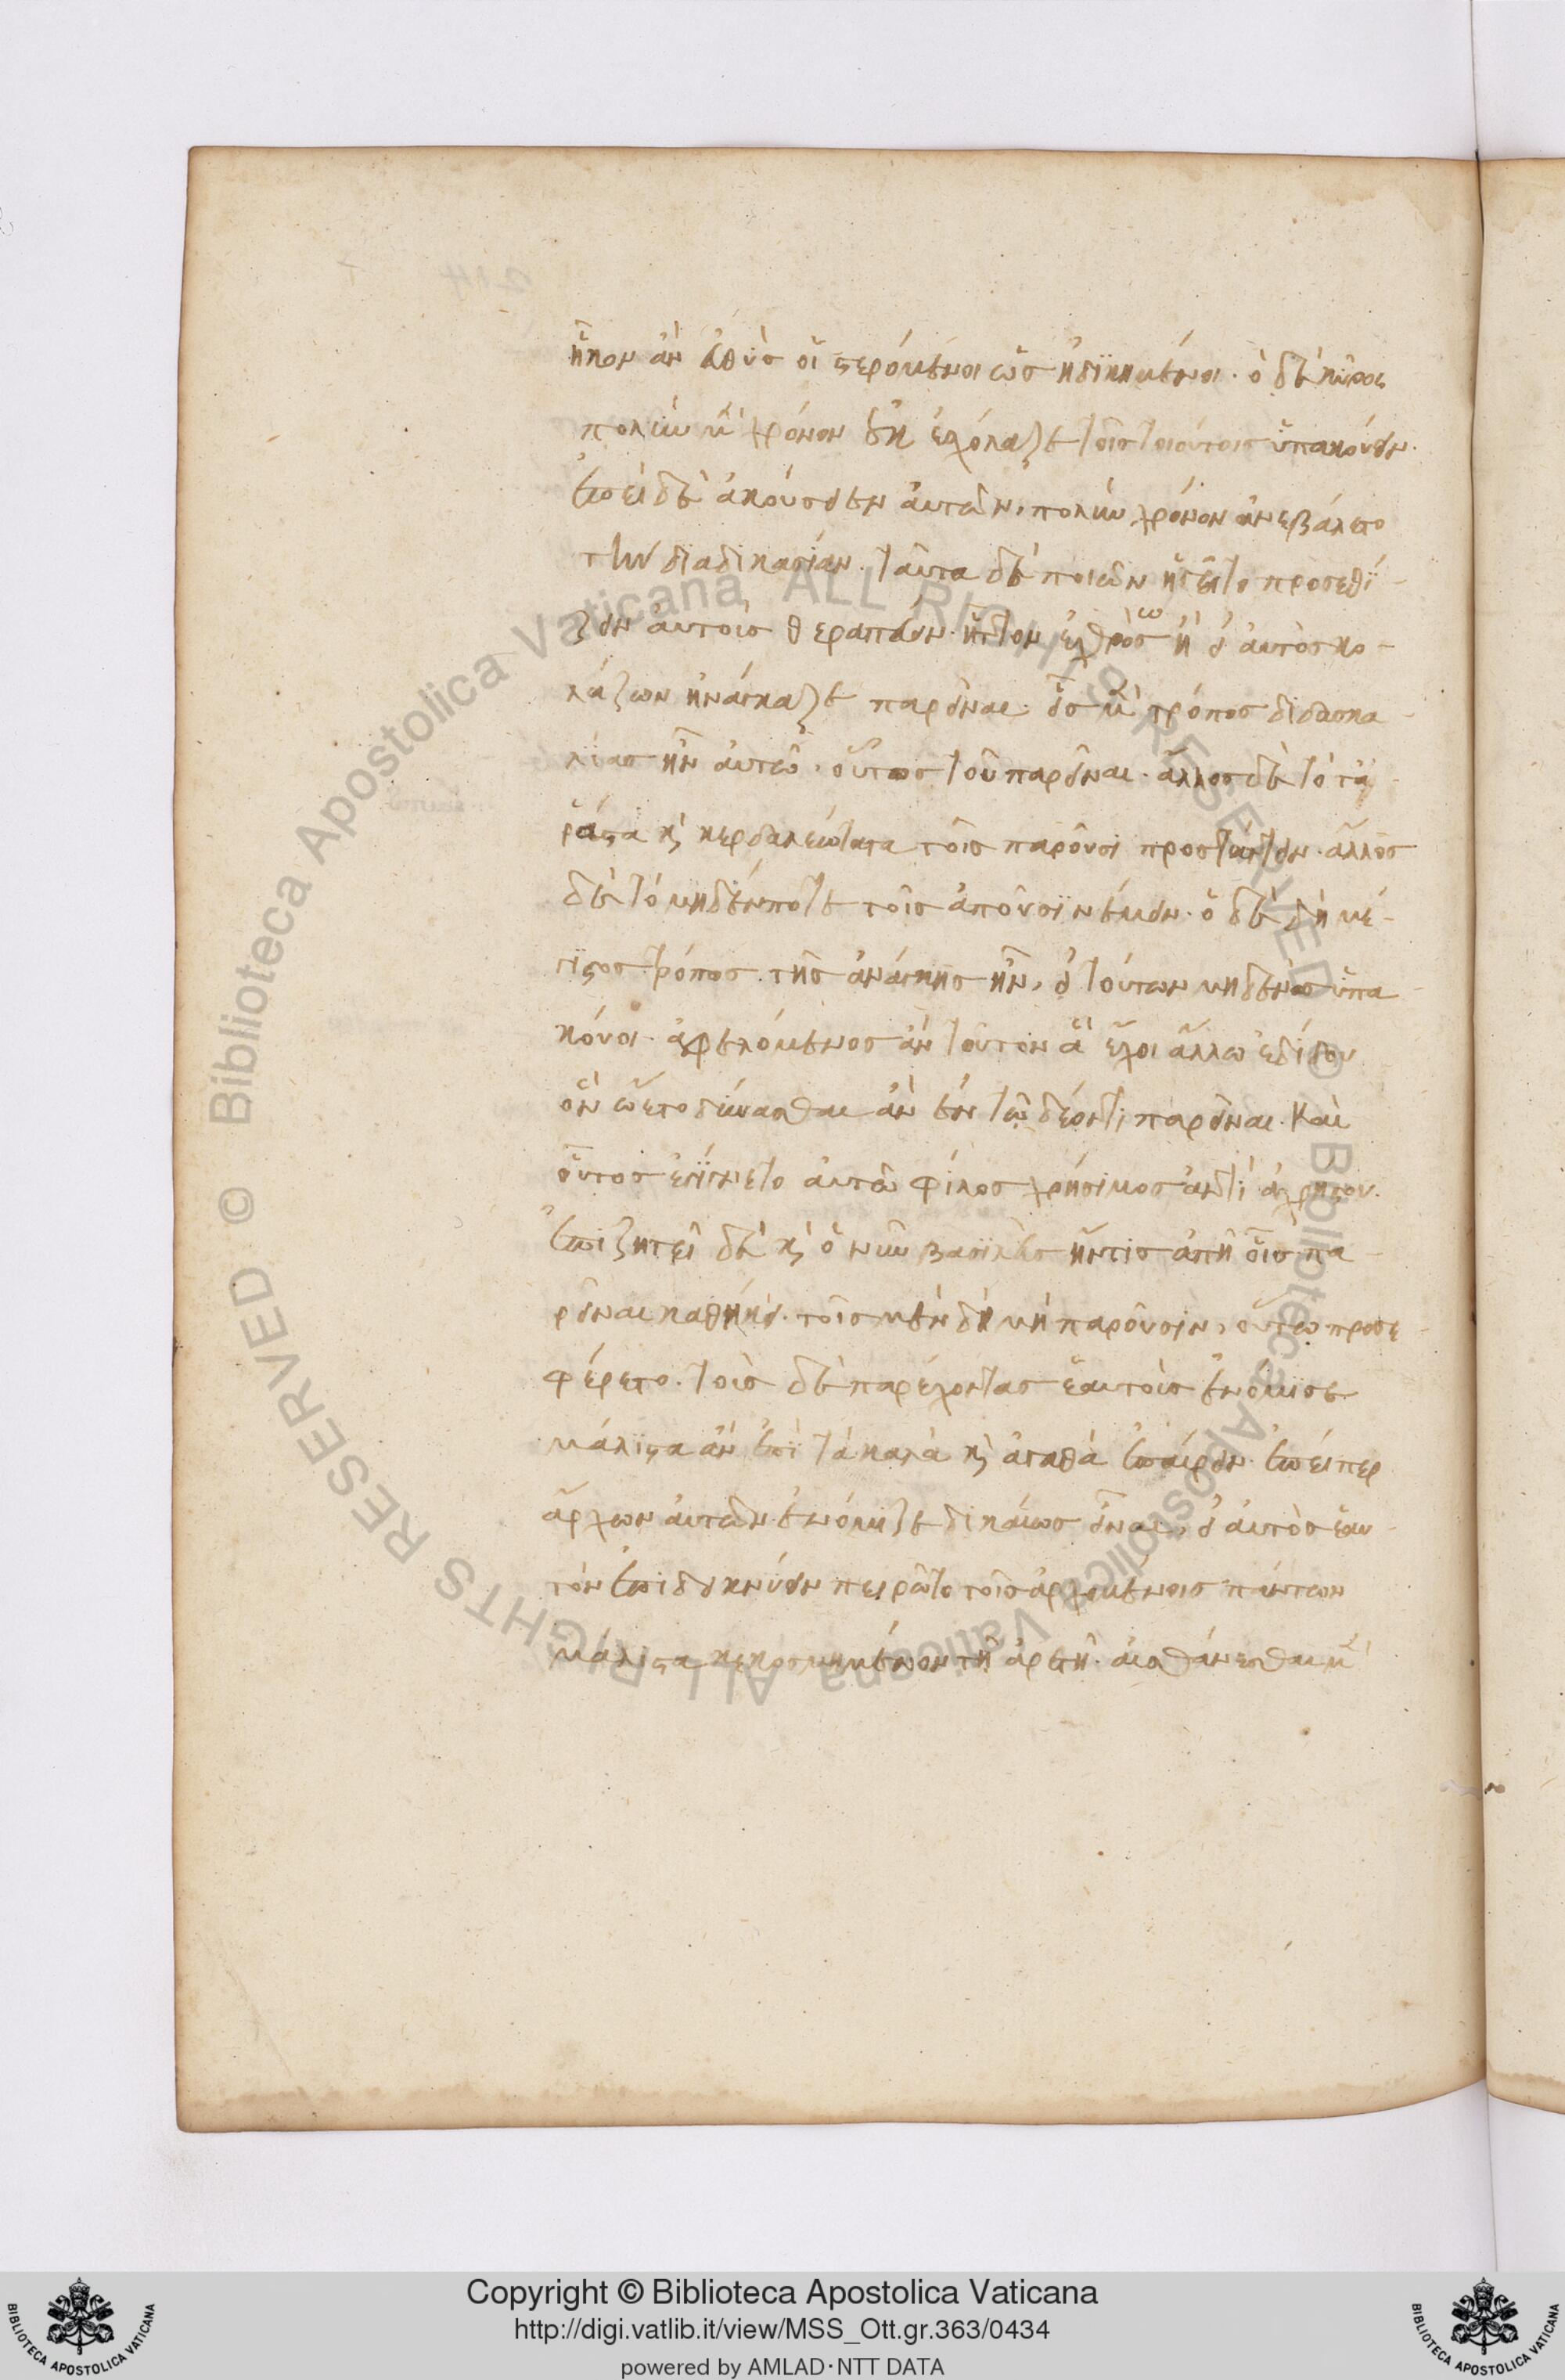 ἧκον ἂν εὐθὺς οἱ στερόμενοι ὡς ἠδϊκημένοι. ὁ δὲ κῦρος
πολὺν μὲν χρόνον οὐκ ἐσχόλαζε τοῖς τοιούτοις ὑπακούειν.
ἐπεὶ δὲ ἀκούσειεν αὐτῶν, πολὺν χρόνον ἀνεβάλετο
τὴν διαδικασίαν. ταῦτα δὲ ποιῶν ἡγεῖτο προσεθί-
ζειν αὐτοὺς θεραπεύειν. ἧττον ἐχθρὸς ω ἢ εἰ αὐτὸς κο-
λάζων ἠνάγκαζε παρεῖναι. εἷς μὲν τρόπος διδασκα-
λίας ἦν αὐτῷ. οὗτος τοῦ παρεῖναι. ἄλλος δὲ τὸ τὰ
ῥᾶστα καὶ κερδαλεώτατα τοῖς παροῦσι προστάττειν. ἄλλος
δὲ τὸ μηδέν ποτε τοῖς ἀποῦσϊ νέμειν. ὁ δὲ δὴ μέ-
γιστος τρόπος τῆς ἀνάγκης ἦν, εἰ τούτων μηδενὸς ὑπα-
κούοι. ἀφελόμενος ἂν τοῦτον ἃ ἔχοι ἄλλω ἐδίδου
ὃν ᾤετο δύνασθαι ἂν ἐν τῷ δέοντι παρεῖναι. καὶ
οὗτος ἐγίγνετο αὐτῶ φίλος χρήσιμος ἀντὶ ἀχρήστου.
ἐπιζητεῖ δὲ καὶ ὁ νῦν βασϊλεὺς ἤντις ἀπῇ οἷς πα-
ρεῖναι καθήκει. τοῖς μὲν δὴ μὴ παροῦσιν, οὕτω προσε-
φέρετο. τοὺς δὲ παρέχοντας ἑαυτοὺς ἐνόμισε
μάλιστα ἂν ἐπὶ τὰ καλὰ καὶ ἀγαθὰ ἐπαίρειν. ἐπείπερ
ἄρχων αὐτῶν ἐνόμιζε δικαίως εἶναι, εἰ αὐτὸς ἑαυ-
τὸν ἐπιδεικνύειν πειρῶτο τοῖς ἀρχομένοις πάντων
μάλιστα κεκοσμημένον τῇ ἀρετῇ. αἰσθάνεσθαι μὲν
Copyright © Biblioteca Apostolica Vaticana
http://digi.vatlib.it/view/MSS_Ott.gr.363/0434
powered by AMLAD·NTT DATA